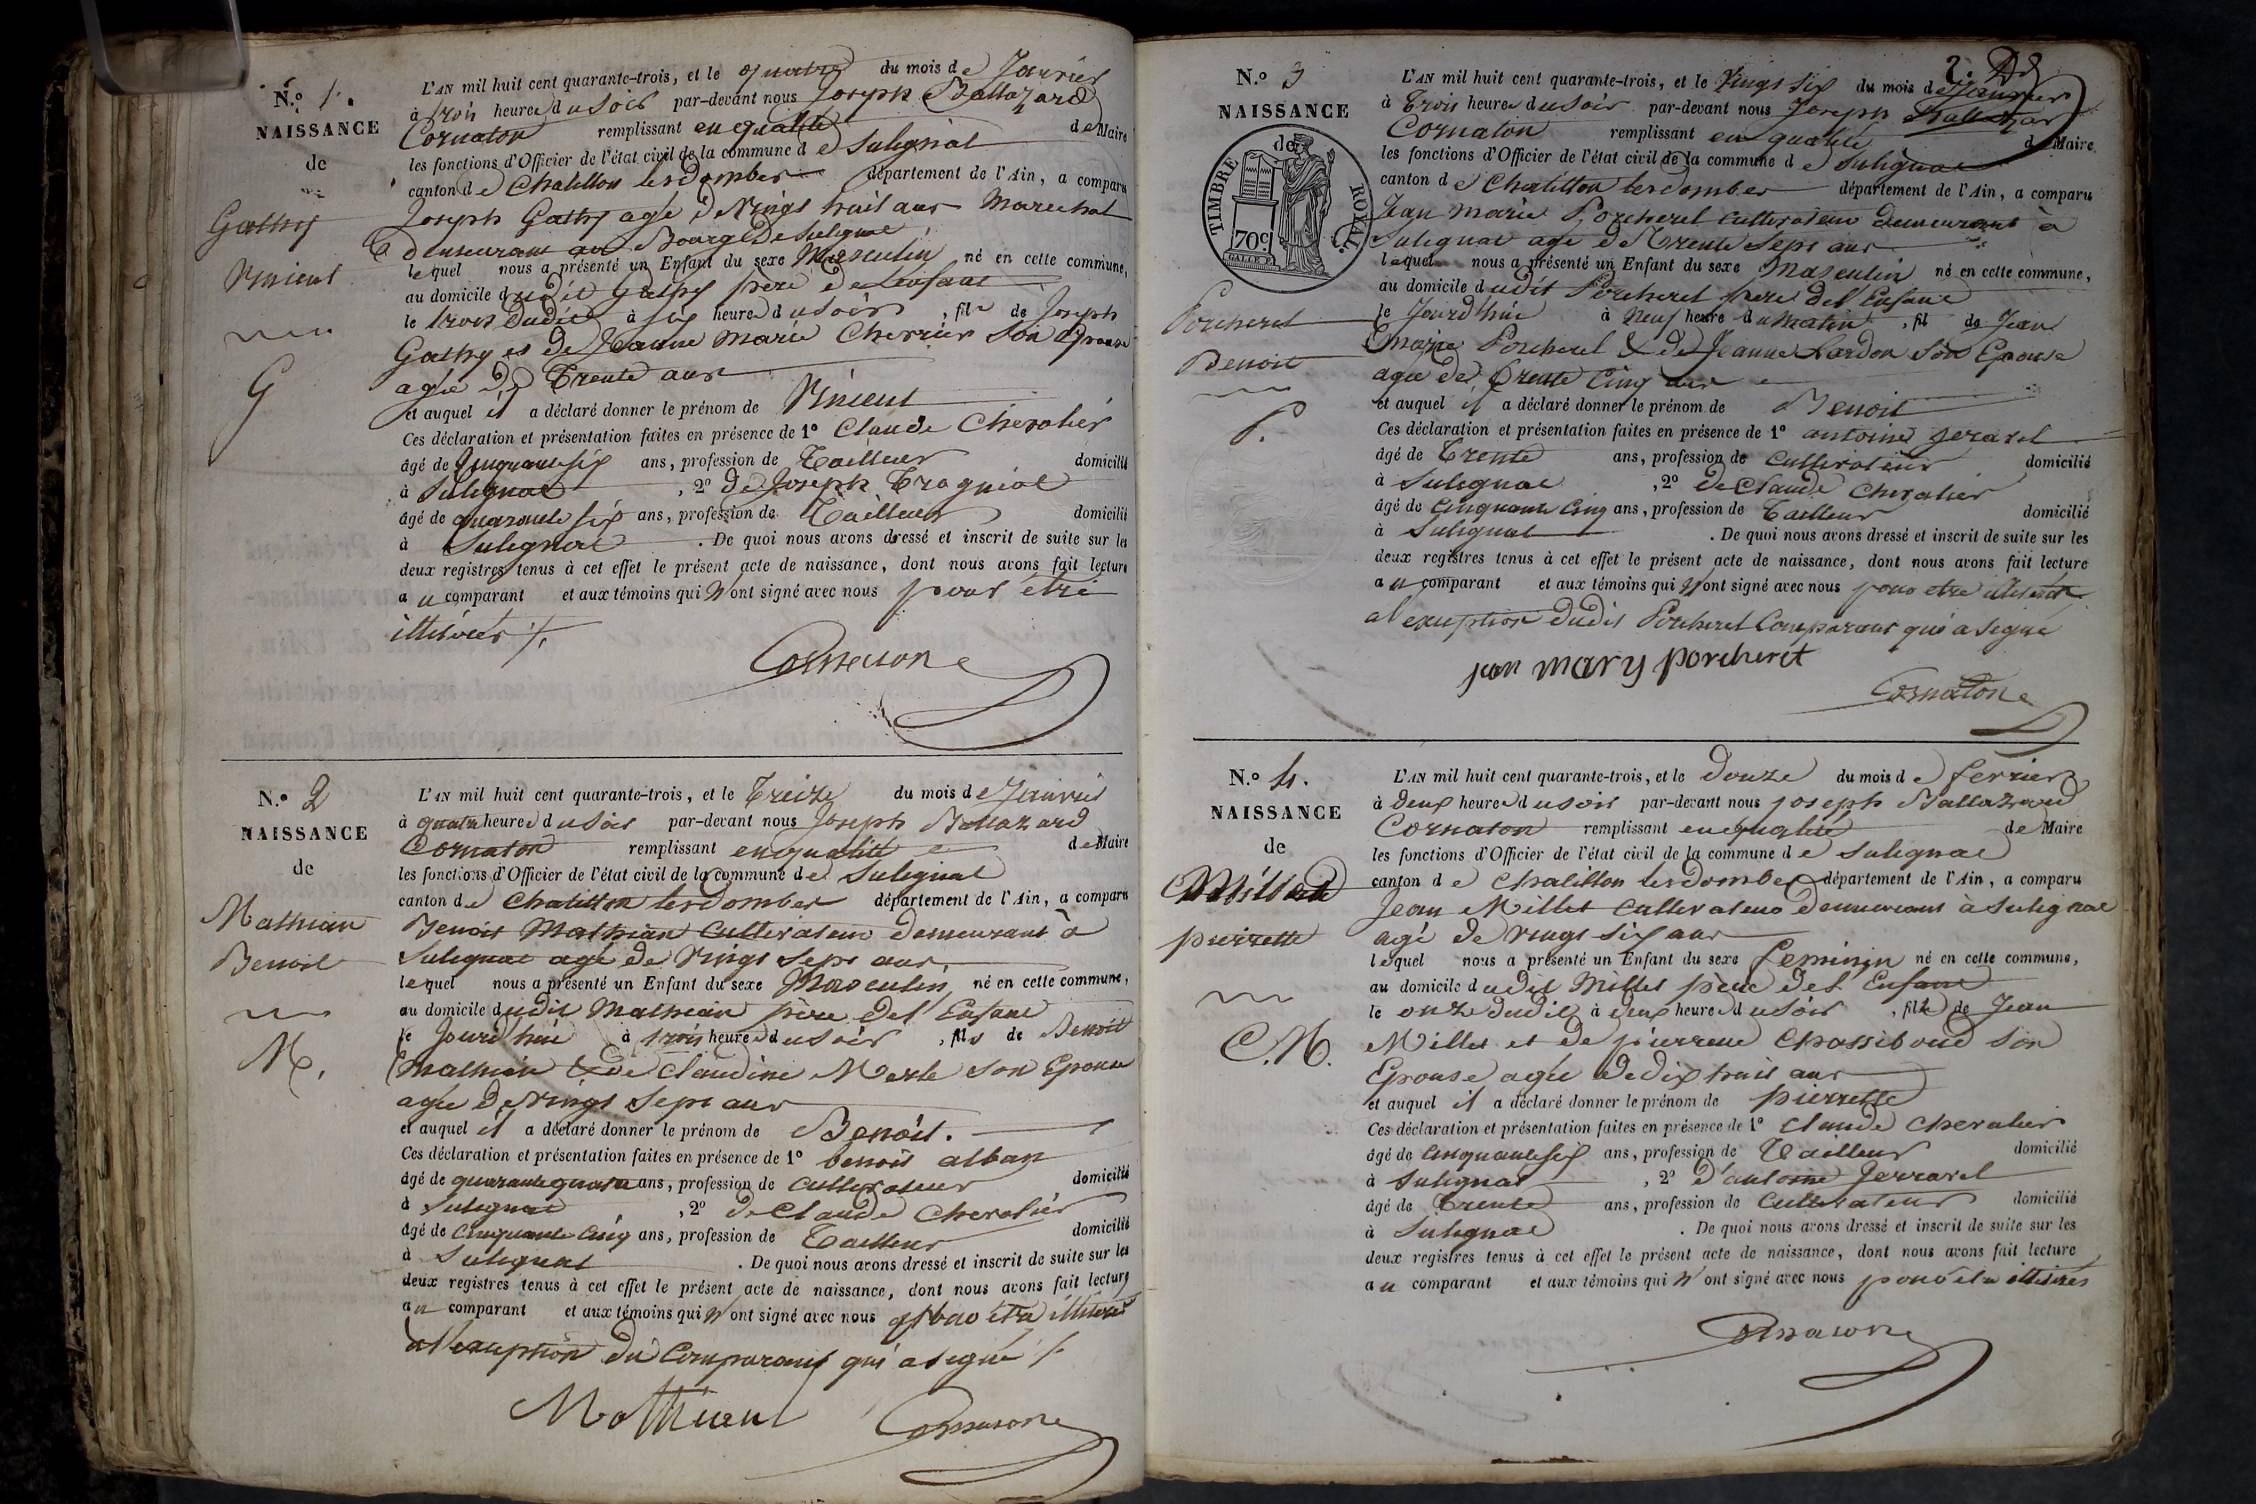 N.o 1.
NAISSANCE
de
Gathy
Vincent
G
L'AN mil huit cent quarante-trois, et le quatre du mois de Janvier
à trois heure du soir par-devant nous Joseph Baltazard
Cornaton remplissant en qualité de Maire
les fonctions d'Officier de l'état civil de la commune de Sulignat
canton de Chatillon les dombes département de l'Ain, a comparu
Joseph Gathy agé de Vingt huit ans Marechal
demeurant au Bourg De Sulignat
lequel nous a présenté un Enfant du sexe Masculin né en cette commune,
au domicile dudit Gathy père de l'enfant
le trois dudit à six heure du soir, fils de Joseph
Gathy et de Jeanne marie Cherrier son Epouse
agée de Trente ans
et auquel il a déclaré donner le prénom de Vincent
Ces déclaration et présentation faites en présence de 1o Claude Chevalier
âgé de Cinquante six ans, profession de Tailleur domicilié
à Sulignat, 2o de Joseph Tragniat
âgé de quarante six ans, profession de Tailleur domicilié
à Sulignat. De quoi nous avons dressé et inscrit de suite sur les
deux registres tenus à cet effet le présent acte de naissance, dont nous avons fait lecture
au comparant et aux témoins qui N'ont signé avec nous pour être
illitérés /.
Cornaton
N.o 2
NAISSANCE
de
Mathian
Benoit
M.
L'AN mil huit cent quarante-trois, et le Treize du mois de Janvier
à quatre heure du soir par-devant nous Joseph Baltazard
Cornaton remplissant en qualité de Maire
les fonctions d'Officier de l'état civil de la commune de Sulignat
canton de Chatillon les dombes département de l'Ain, a comparu
Benoit Mathian Cultivateur demeurant à
Sulignat agé de Vingt Sept ans
lequel nous a présenté un Enfant du sexe Masculin, né en cette commune,
au domicile dudit Mathian père del' Enfant
le Jourd'hui à trois heure du soir, fils de Benoit
Mathian & de Claudine Merle son Epouse
agée De Vingt Sept ans
et auquel il a déclaré donner le prénom de Benoit.
Ces déclaration et présentation faites en présence de 1o benoit alban
âgé de quarante quatre ans, profession de cultivateur domicilié
à Sulignat, 2o de Claude Chevalier
âgé de Cinquante Cinq ans, profession de Tailleur domicilié
à Sulignat. De quoi nous avons dressé et inscrit de suite sur les
deux registres tenus à cet effet le présent acte de naissance, dont nous avons fait lecture
au comparant et aux témoins qui N'ont signé avec nous être illitérés
al'exeuption du Comparant qui a signé /.
Mathian
Cornaton
2.
N.o 3
NAISSANCE
de
TIMBRE ROYAL.
70c
Porcheret
Benoit
P.
L'AN mil huit cent quarante-trois, et le Vingt six du mois de Janvier
à Trois heure du soir par-devant nous Joseph Baltazar
Cornaton remplissant en qualité de Maire
les fonctions d'Officier de l'état civil de la commune de Sulignat
canton de Chatillon les dombes département de l'Ain, a comparu
Jean marie Porcheret cultivateur demeurant à
Sulignat agé de Trente Sept ans
lequel nous a présenté un Enfant du sexe Masculin né en cette commune,
au domicile dudit Porcheret père del' Enfant
le Jourd'hui à Neuf heure du matin, fil de Jean
marie Porcheret & de Jeanne Lardon son Epouse
agée de Trente Cinq ans
et auquel il a déclaré donner le prénom de Benoit
Ces déclaration et présentation faites en présence de 1o antoine
âgé de Trente ans, profession de cultivateur domicilié
à Sulignat, 2o de Claude Chevalier
âgé de Cinquante Cinq ans, profession de Tailleur domicilié
à Sulignat. De quoi nous avons dressé et inscrit de suite sur les
deux registres tenus à cet effet le présent acte de naissance, dont nous avons fait lecture
au comparant et aux témoins qui N'ont signé avec nous pour etre
al'exeuption dudit Porcheret Comparant qui a signé
jean mary porcheret
Cornaton
N.o 4.
NAISSANCE
de
pierrette
C.M.
L'AN mil huit cent quarante-trois, et le Douze du mois de fevrier
à Deux heure du soir par-devant nous Joseph Baltazard
Cornaton remplissant en qualité de Maire
les fonctions d'Officier de l'état civil de la commune de Sulignat
canton de Chatillon les dombes département de l'Ain, a comparu
Jean Millet Cultivateur Demeurant à Sulignat
agé de vingt six ans
lequel nous a présenté un Enfant du sexe feminin né en cette commune,
au domicile dudit Millet père del' Enfant
le onze dudit à deux heure du soir, fille de Jean
Millet et de pierrette Chassiboud son
Epouse agée De dix huit ans
et auquel il a déclaré donner le prénom de pierrette
Ces déclaration et présentation faites en présence de 1o Claude Chevalier
âgé de Cinquante six ans, profession de Tailleur domicilié
à Sulignat, 2o d'antoine
âgé de Trente ans, profession de Cultivateur domicilié
à Sulignat. De quoi nous avons dressé et inscrit de suite sur les
deux registres tenus à cet effet le présent acte de naissance, dont nous avons fait lecture
au comparant et aux témoins qui N'ont signé avec nous pour être illitérés
Cornaton